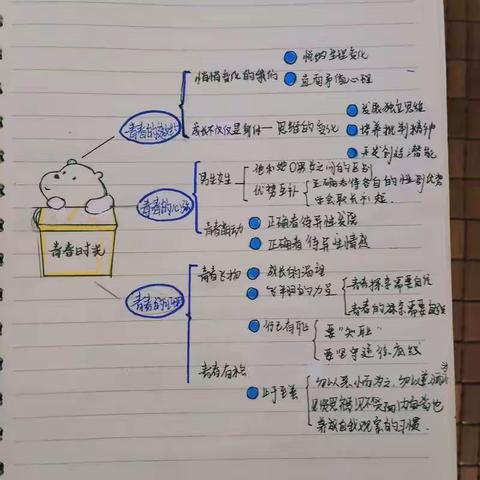 悄悄变化的我们
悦纳生理变化
直面矛盾心理
成长不仅仅是身体——思维的变化
发展独立思维
培养批判精神
开发创造潜能
青春的邀约
男生女生
优势互补
正确看待各自的性别优势
学会取长补短
青春的心弦
青春萌动
正确看待异性交往
正确看待异性情感
青春时光
青春飞扬
成长的渴望
飞翔的力量
青春探索需要自信
青春的探索需要自强
青春的证明
行己有耻
要"知耻"
要坚守道德底线
青春有格
止于至善
养成自我观察的习惯